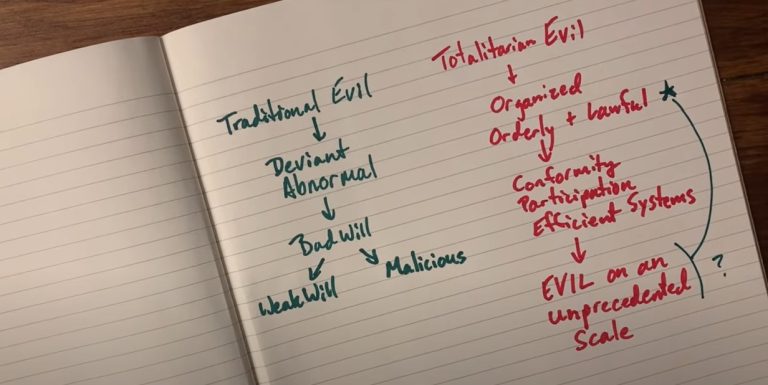 Traditional Evil
↓
Deviant
Abnormal
↓
Bad Will
↙ ↘
Weak Will
Malicious
Totalitarian Evil
↓
Organized
Orderly + Lawful ★
↓
Conformity
Participation
Efficient Systems
↓
EVIL on an
unprecedented
Scale
?